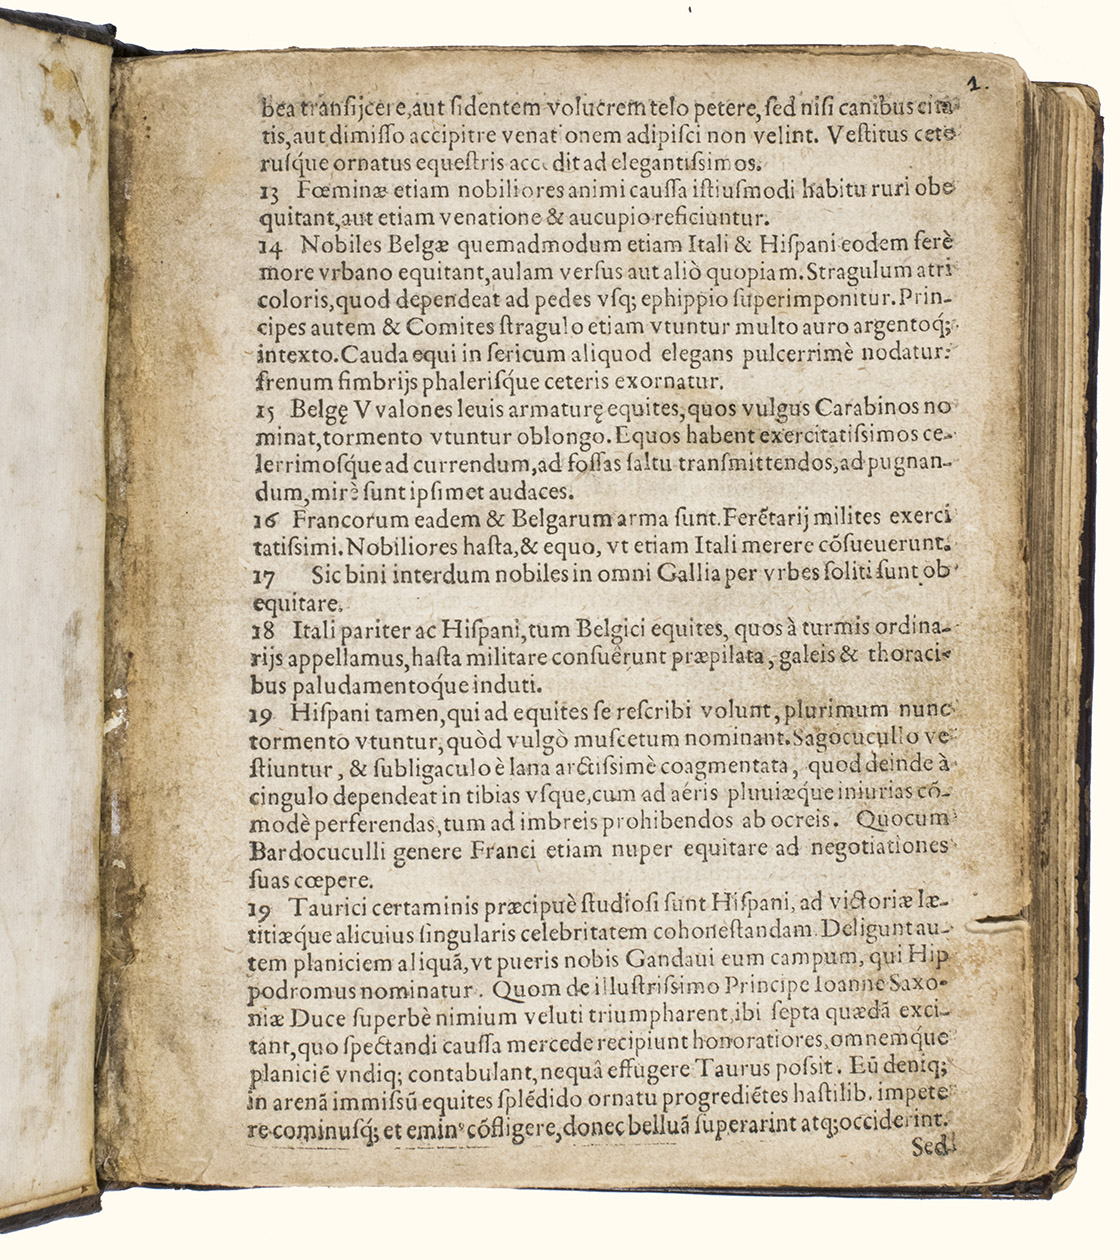 1.
bea tranſijcere,aut ſidentem volucrem telo petere, ſed niſi canibus cita
tis,aut dimiſſo accipitre venationem adipiſci non velint. Veſtitus cete
ruſq́ue ornatus equeſtris accedit ad elegantiſsimos.
13 Fœminæ etiam nobiliores animi cauſſa iſtiuſmodi habitu ruri obe
quitant,aut etiam venatione & aucupio reficiuntur.
14 Nobiles Belgæ quemadmodum etiam Itali & Hiſpani eodem ferè
more vrbano equitant,aulam verſus aut aliò quopiam. Stragulum atri
coloris,quod dependeat ad pedes vſq; ephippio ſuperimponitur. Prin-
cipes autem & Comites ſtragulo etiam vtuntur multo auro argentoq́;
intexto. Cauda equi in ſericum aliquod elegans pulcerrimè nodatur:
frenum fimbrijs phaleriſq́ue ceteris exornatur.
15 Belgę Vvalones leuis armaturę equites,quos vulgus Carabinos no
minat,tormento vtuntur oblongo. Equos habent exercitatiſsimos ce-
lerrimoſq́ue ad currendum,ad foſſas ſaltu tranſmittendos,ad pugnan-
dum,mirè ſunt ipſimet audaces.
16 Francorum eadem & Belgarum arma ſunt. Ferẽtarij milites exerci
tatiſsimi. Nobiliores haſta,& equo, vt etiam Itali merere cõſueuerunt.
17 Sic bini interdum nobiles in omni Gallia per vrbes ſoliti ſunt ob
equitare.
18 Itali pariter ac Hiſpani,tum Belgici equites, quos à turmis ordina-
rijs appellamus,haſta militare conſuêrunt præpilata, galeis & thoraci-
bus paludamentoq́ue induti.
19 Hiſpani tamen,qui ad equites ſe reſcribi volunt, plurimum nunc
tormento vtuntur,quòd vulgò muſcetum nominant. Sagocucullo ve
ſtiuntur, & ſubligaculo è lana arctiſsimè coagmentata, quod deinde à
cingulo dependeat in tibias vſque,cum ad aëris pluuiæque iniurias cõ-
modè perferendas,tum ad imbreis prohibendos ab ocreis. Quocum
Bardocuculli genere Franci etiam nuper equitare ad negotiationes
ſuas cœpere.
19 Taurici certaminis præcipuè ſtudioſi ſunt Hiſpani, ad victoriæ læ-
titiæq́ue alicuius ſingularis celebritatem cohoneſtandam. Deligunt au-
tem planiciem aliquã,vt pueris nobis Gandaui eum campum, qui Hip
podromus nominatur. Quom de illuſtriſsimo Principe Ioanne Saxo-
niæ Duce ſuperbè nimium veluti triumpharent,ibi ſepta quædã exci-
tant,quo ſpectandi cauſſa mercede recipiunt honoratiores,omnemq́ue
planiciẽ vndiq; contabulant,nequâ effugere Taurus poſsit. Eũ deniq;
in arenã immiſsũ equites ſplẽdido ornatu progrediẽtes haſtilib. impete
re cominuſq́; et eminꝰ cõfligere,donec belluã ſuperarint atq; occiderint.
Sed